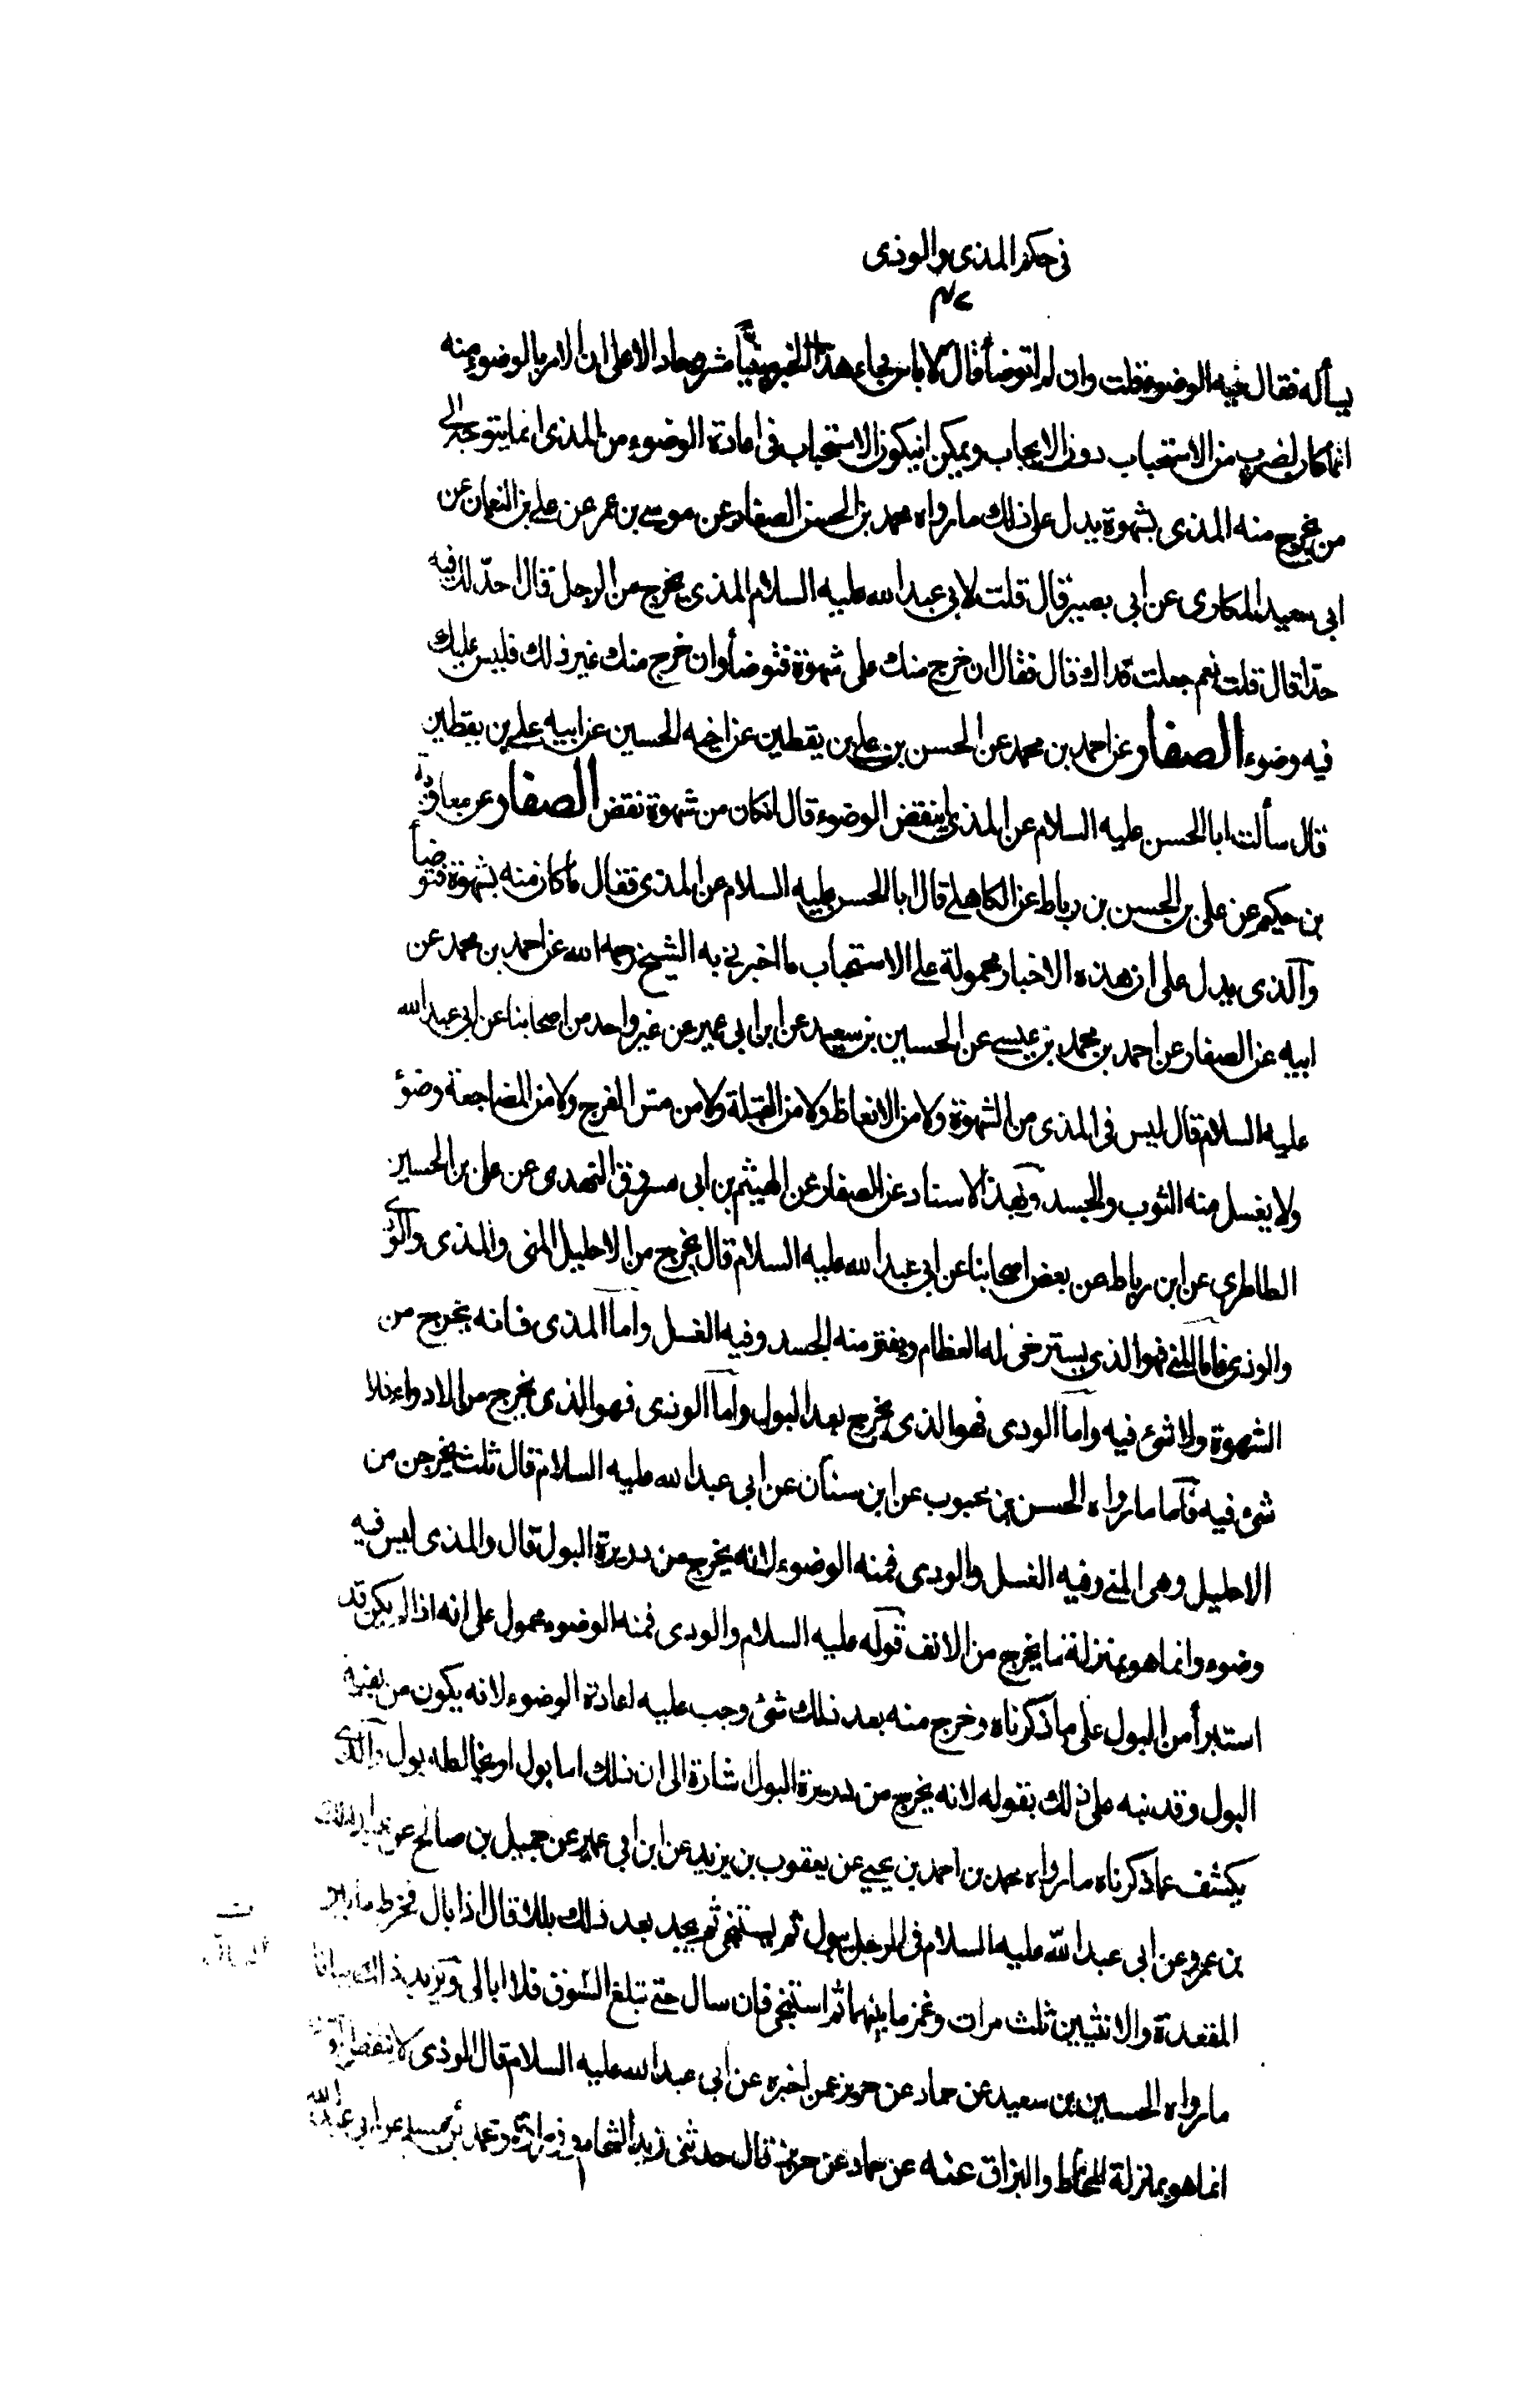 في حكم المذى والوذى
٤٧
يسأله فقال فيه الوضوء قلت وان لم اتوضأ قال لا باس فجاء هذا الخبر مبينا مشروحا دالا على ان الامر بالوضوء منه
انما كان لضرب من الاستحباب دون الايجاب ويمكن ان يكون الاستحباب في اعادة الوضوء من المذى انما يتوجه الى
من يخرج منه المذى بشهوة يدل على ذلك ما رواه محمد بن الحسن الصفار عن موسى بن عمر عن على بن النعمان عن
ابى سعيد المكارى عن ابى بصير قال قلت لابى عبد الله عليه السلام المذى يخرج من الرجل قال احدّ لك فيه
حدّا قال قلت نعم جعلت فداك قال فقال ان خرج منك على شهوة فتوضأ وان خرج منك غير ذلك فليس عليك
فيه وضوء الصفار عن احمد بن محمد عن الحسن بن على بن يقطين عن اخيه الحسين عن ابيه على بن يقطين
قال سألت ابا الحسن عليه السلام عن المذى اينقض الوضوء قال ان كان من شهوة نقض الصفار عن معاوية
بن حكيم عن على بن الحسن بن رباط عن الكاهلى قال ابا الحسن عليه السلام عن المذى فقال ما كان منه بشهوة فتوضأ
والذى يدل على ان هذه الاخبار محمولة على الاستحباب ما اخبرنى به الشيخ رحمه الله عن احمد بن محمد عن
ابيه عن الصفار عن احمد بن محمد بن عيسى عن الحسين بن سعيد عن ابن ابى عمير عن غير واحد من اصحابنا عن ابى عبد الله
عليه السلام قال ليس في المذى من الشهوة ولا من الانعاظ ولا من القبلة ولا من مس الفرج ولا من المضاجعة وضؤ
ولا يغسل منه الثوب والجسد وبهذا الاسناد عن الصفار عن الهيثم بن ابى مسروق النهدى عن على بن الحسين
الطاطرى عن ابن رباط عن بعض اصحابنا عن ابى عبد الله عليه السلام قال يخرج من الاحليل المنى والمذى والودى
والوذى فاما المنى فهو الذى يسترخى له العظام ويفتر منه الجسد وفيه الغسل واما المذى فانه يخرج من
الشهوة ولا شئ فيه واما الودى فهو الذى يخرج بعد البول واما الوذى فهو الذى يخرج من الادواء فلا
شئ فيه فاما ما رواه الحسن بن محبوب عن ابن سنان عن ابى عبد الله عليه السلام قال ثلث يخرجن من
الاحليل وهى المنى وفيه الغسل والودى فمنه الوضوء لانه يخرج من دريرة البول قال والمذى ليس فيه
وضوء وانما هو بمنزلة ما يخرج من الانف قوله عليه السلام والودى فمنه الوضوء محمول على انه اذا لم يكن قد
استبرأ من البول على ما ذكرناه وخرج منه بعد ذلك شئ وجب عليه اعادة الوضوء لانه يكون من بقية
البول وقد نبه على ذلك بقوله لانه يخرج من دريرة البول اشارة الى ان ذلك اما بول او يخالطه بول والذى
يكشف عما ذكرناه ما رواه محمد بن احمد بن يحيى عن يعقوب بن يزيد عن ابن ابى عمير عن جميل بن صالح عن عبد الملك
بن عمرو عن ابى عبد الله عليه السلام في الرجل يبول ثم يستنجى ثم يجد بعد ذلك بللا قال اذا بال فخرط ما بين
المقعدة والانثيين ثلث مرات وغمز ما بينهما ثم استنجى فان سال حتى تبلغ السوق فلا ابالى ويزيد ذلك بيانا
ما رواه الحسين بن سعيد عن حماد عن حريز عمن اخبره عن ابى عبد الله عليه السلام قال الوذى لا ينقض الوضوء
انما هو بمنزلة المخاط والبزاق عنه عن حماد عن حريز قال حدثنى زيد الشحام وزرارة ومحمد بن مسلم عن ابى عبد الله